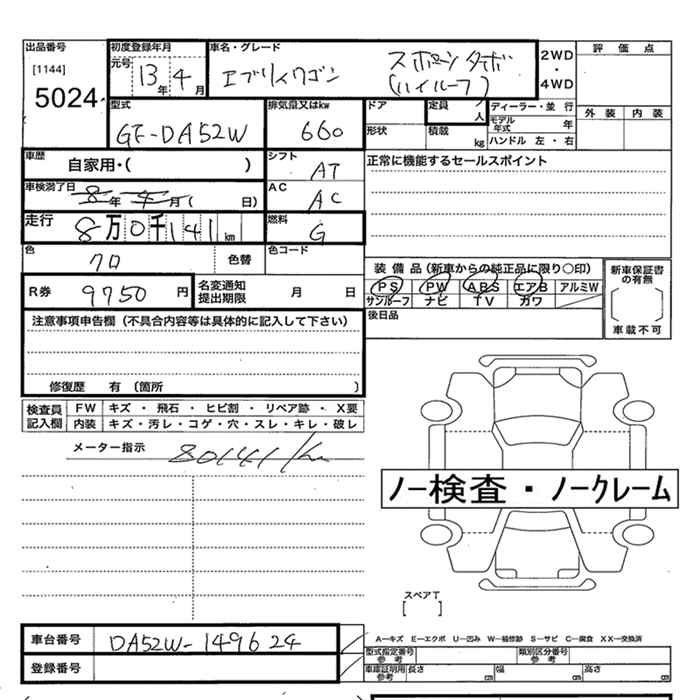 出品番号
[1144]
5024
初度登録年月
元号
13年 4月
車名・グレード
エブリィワゴン
スポーツターボ
(ハイルーフ)
2WD
・
4WD
評価点
外装 内装
型式
GF-DA52W
排気量又はkw
660
ドア
形状
定員 人
積載 kg
ディーラー・並行
モデル年式 年
ハンドル 左・右
車歴
自家用・( )
シフト
AT
正常に機能するセールスポイント
車検満了日
8年 4月( 日)
AC
AC
走行
8万0千141km
燃料
G
色
クロ
色替
色コード
R券
9750円
名変通知
提出期限
月 日
装備品(新車からの純正品に限り○印)
PS PW ABS エアB アルミW
サンルーフ ナビ TV カワ
後日品
新車保証書
の有無
[ ]
車載不可
注意事項申告欄(不具合内容等は具体的に記入して下さい)
修復歴 有 〔箇所 〕
検査員
記入欄
FW キズ・飛石・ヒビ割・リペア跡・X要
内装 キズ・汚レ・コゲ・穴・スレ・キレ・破レ
メーター指示
80141km
ノー検査・ノークレーム
スペアT
[ ]
車台番号
DA52W-149624
登録番号
A―キズ E―エクボ U―凹み W―補修跡 S―サビ C―腐食 XX―交換済
型式指定番号
参考
類別区分番号
参考
車庫証明用
参考
長さ cm
幅 cm
高さ cm